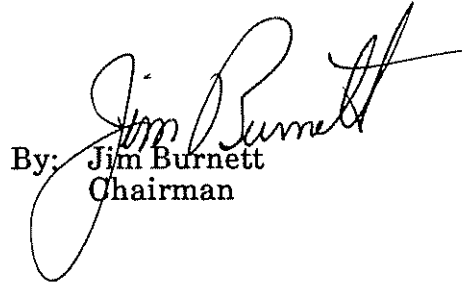 Jim Burnett
By: Jim Burnett
Chairman